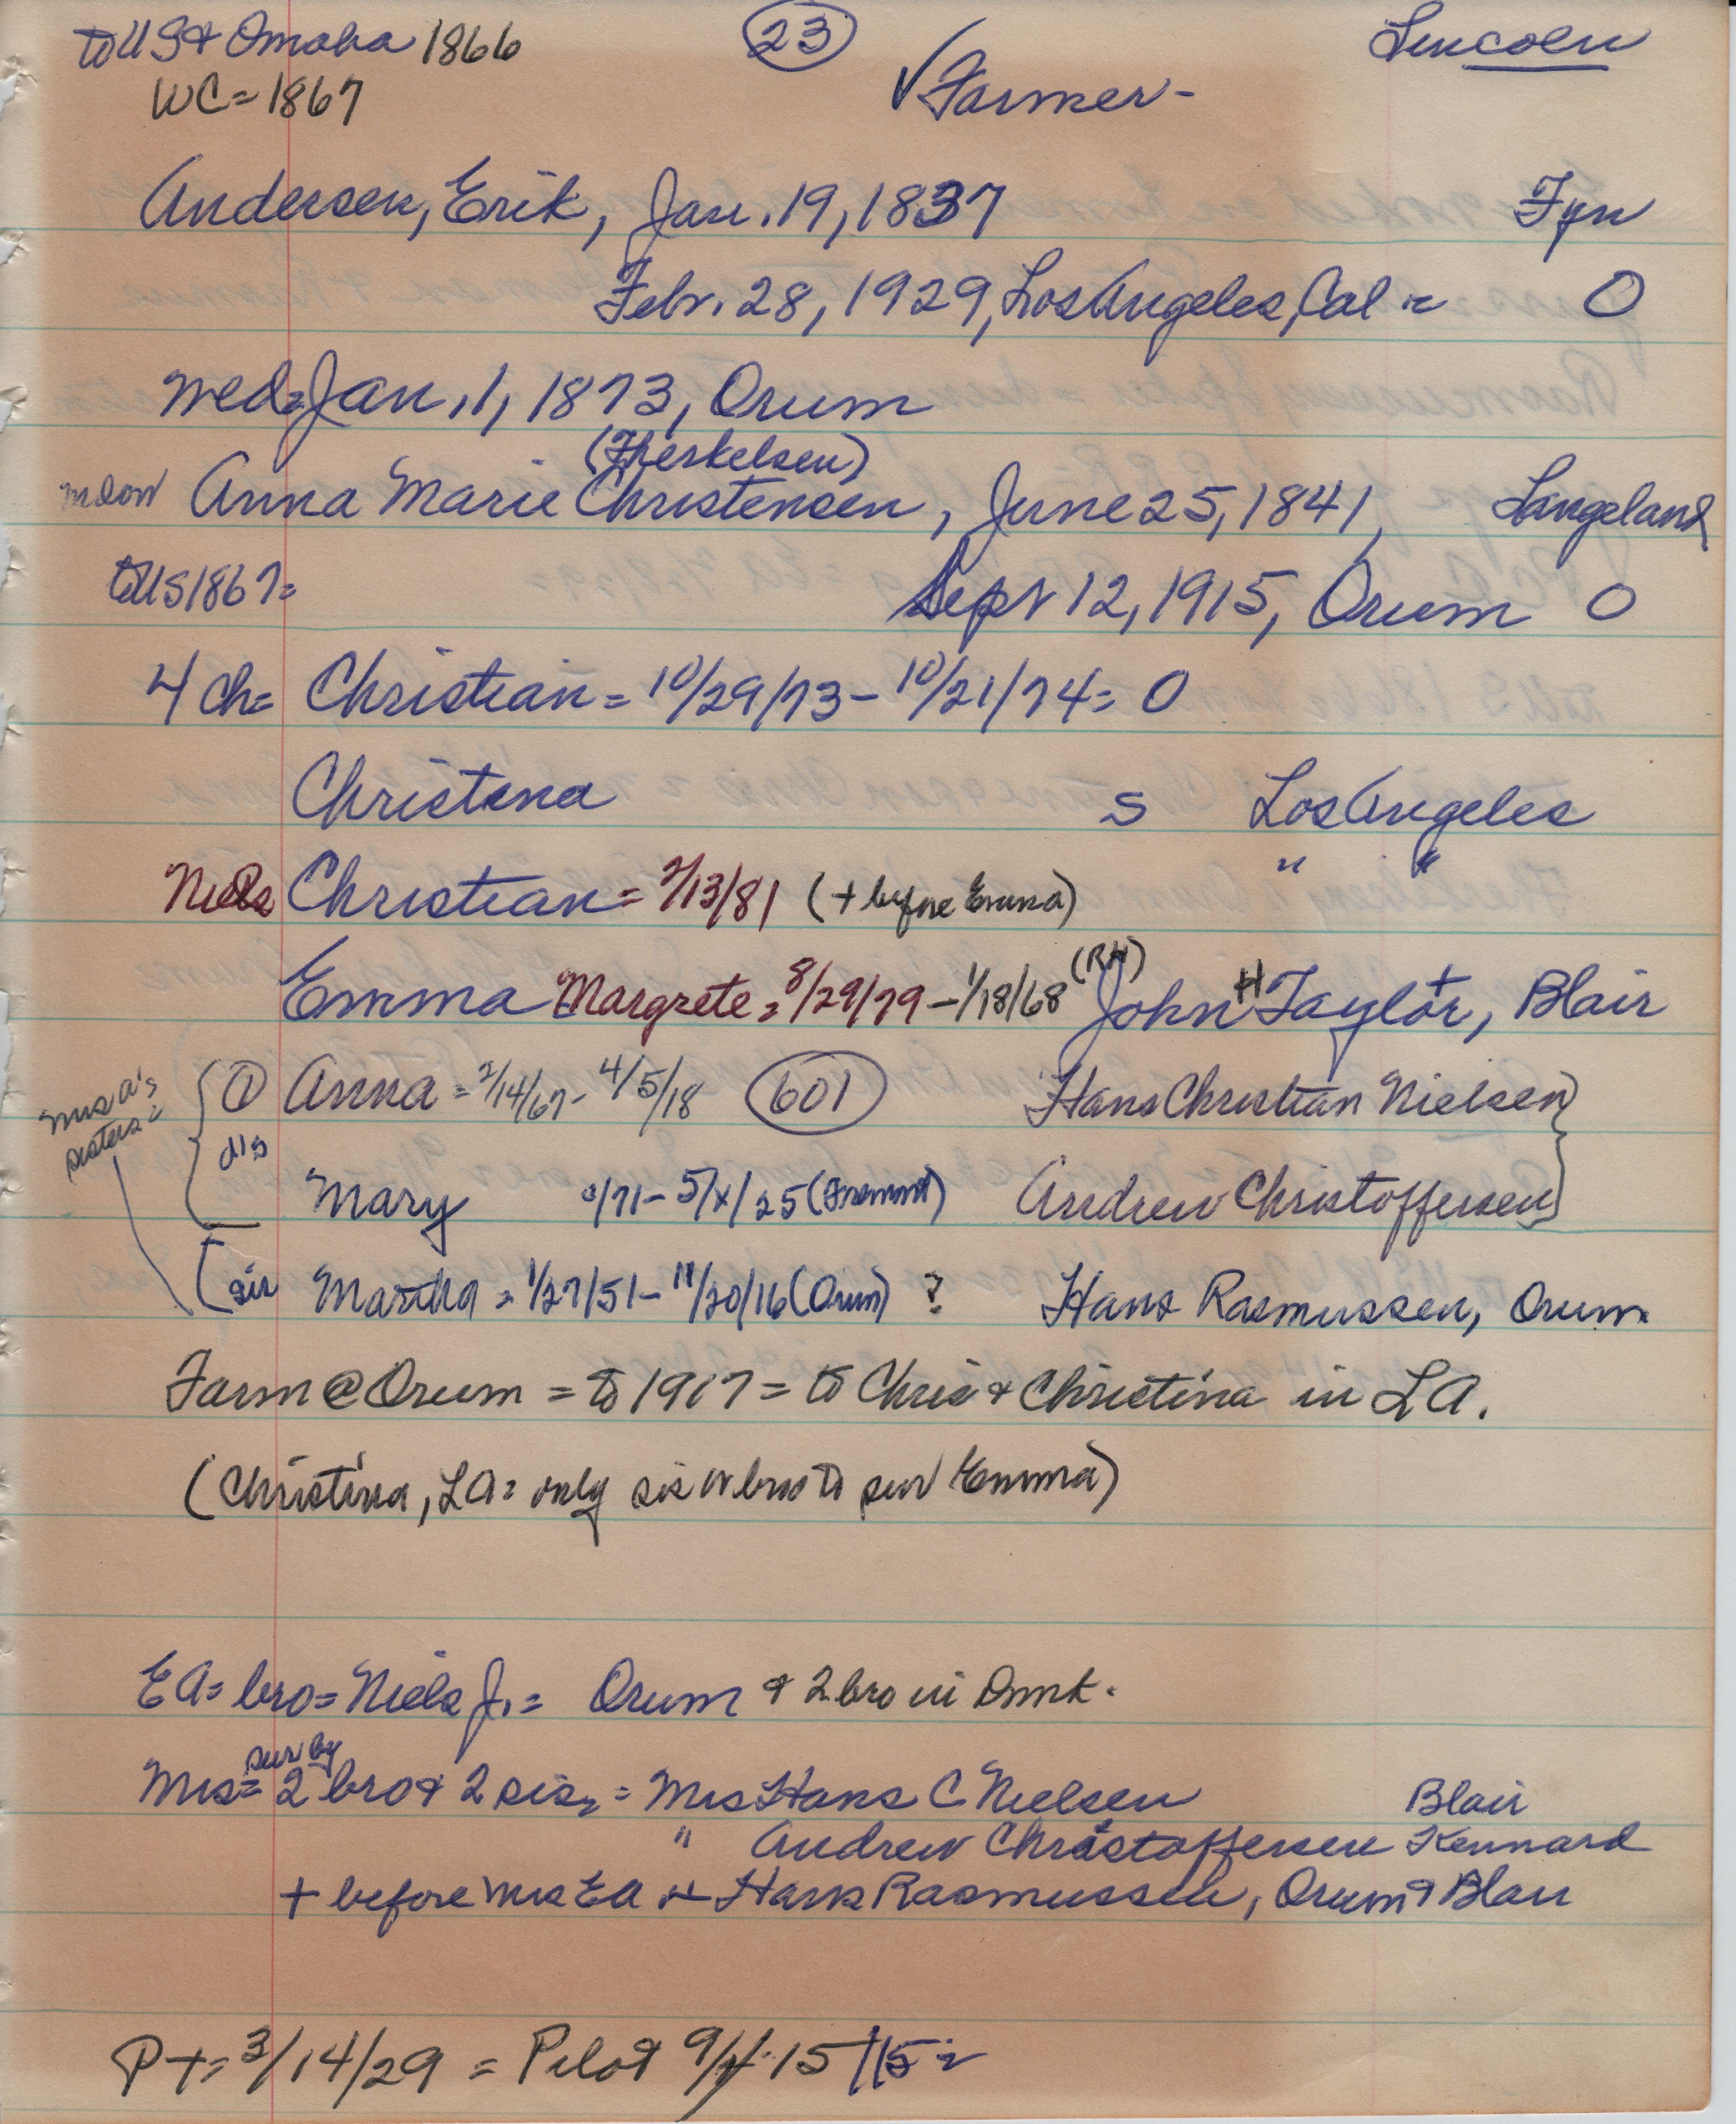 to US & Omaha 1866 (23) Lincoln
WC = 1867 ✓Farmer -
Andersen, Erik, Jan. 19, 1837 Fyn
Febr. 28, 1929, Los Angeles, Cal = O
wed = Jan. 1, 1873, Orum
(Therkelsen)
Anna Marie Christensen, June 25, 1841, Langeland
to US 1867 = Sept 12, 1915, Orum O
4 ch = Christian = 10/29/73 - 10/21/74 = O
Christena S Los Angeles
Niels Christian = 2/13/81 (+ before Emma) " "
Emma Margrete = 8/29/79 - 1/18/68 (RH) John H Taylor +, Blair
Mrs A's sisters = ① Anna = 2/14/67 - 4/5/18 (601) Hans Christian Nielsen }
Mary /71 - 5/x/25 (Fremont) Andrew Christoffersen }
sis Martha = 1/27/51 - 11/20/16 (Orum) ? Hans Rasmussen, Orum.
Farm @ Orum = to 1917 = to Chris & Christina in LA.
(Christina, LA = only sis or bro to sur Emma)
EA = bro = Niels J. = Orum & 2 bro in Dmk.
sur by
Mrs = 2 bro & 2 sis, = Mrs Hans C Nielsen Blair
" Andrew Christoffersen Kennard
+ before Mrs EA = Hans Rasmussen, Orum & Blair
PT = 3/14/29 = Pilot 9/ 15/15 =